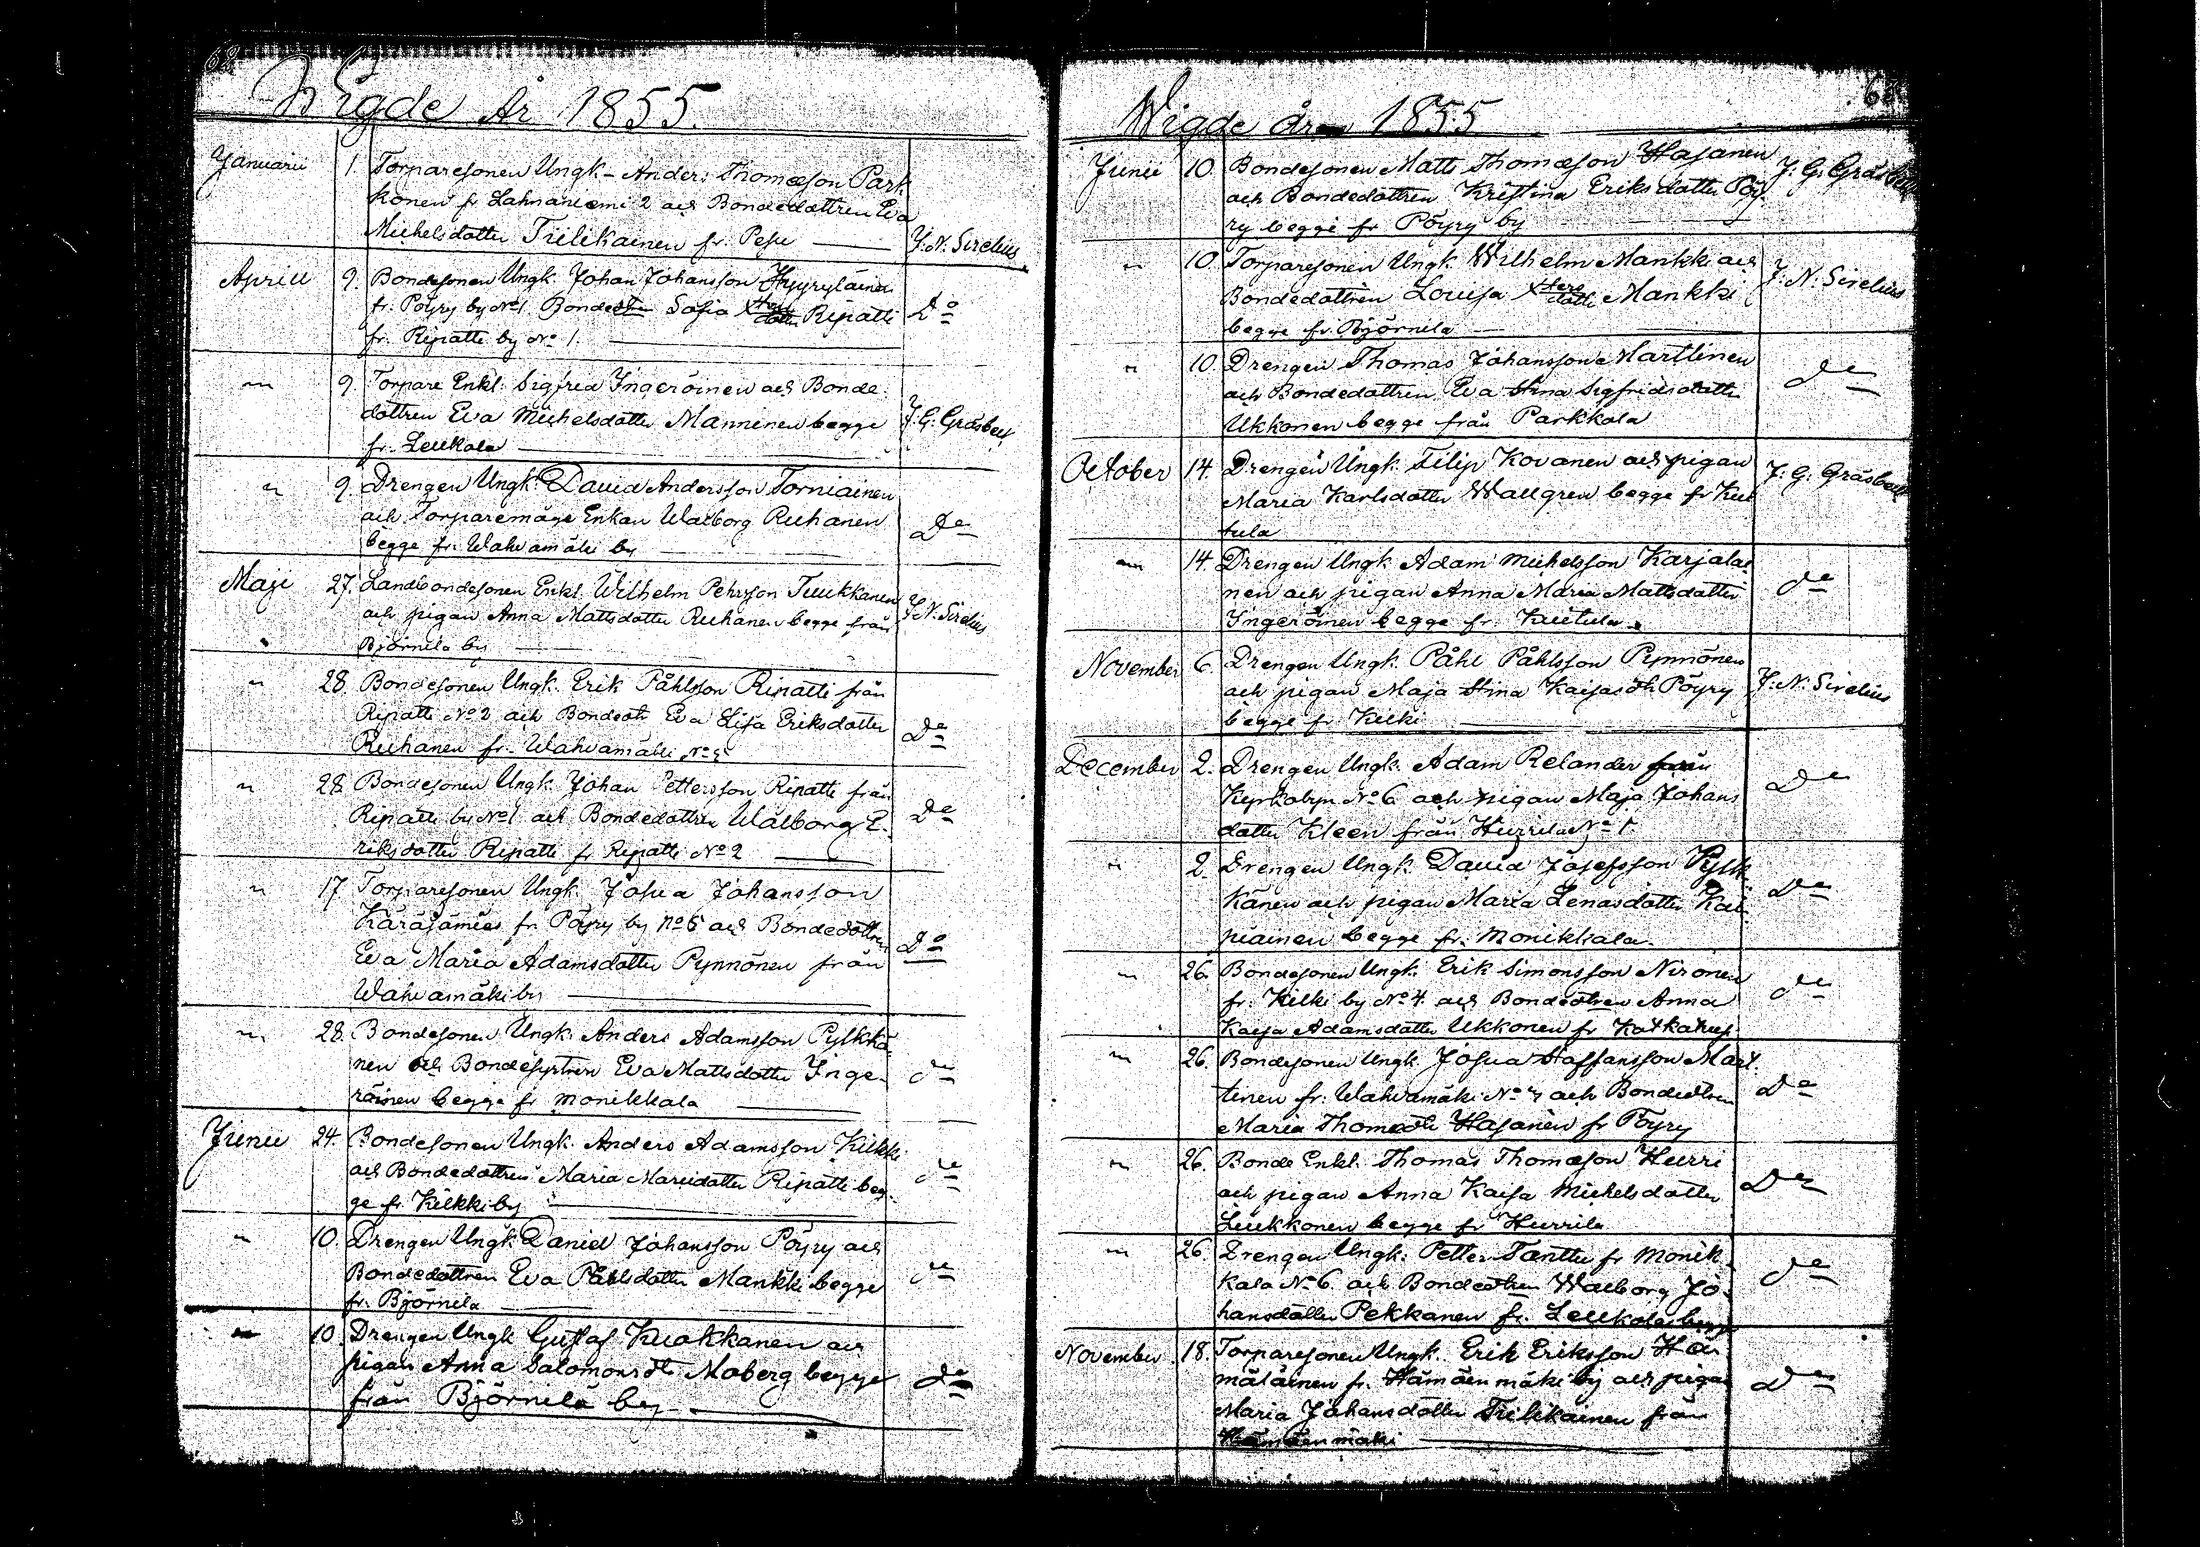 62
Wigde År 1855.
Januarii 1. Torparesonen Ungk. Anders Thomæson Park
konen fr Lahnaniemi 2 och Bondedottren Eva
Michelsdotter Tielikainen fr. Pesu J. N. Sirelius
Aprill 9. Bondesonen Ungk. Johan Johansson Hyyryläinen
fr. Pöyry by No 1 Sofia Xters dotter Ripatti Do
fr. Ripatti by No 1.
" 9. Torpare Enkl. Sigfred Ingeröinen och Bonde
dottren Eva Michelsdotter Manninen begge J. G. Gråsbeck
fr. Leukola
" 9. Drengen Ungk. David Andersson Torniainen
och Torparemåge Enkan Walborg Ruhanen Do
begge fr. Wahvamäki by
Maji 27. Landbondesonen Enkl. Wilhelm Pehrson Tuukkanen
och pigan Anna Mattsdotter Ruhanen begge från J. N. Sirelius
Björnila by
" 28. Bondesonen Ungk. Erik Påhlsson Ripatti från
Ripatti No 2 och Bondedtr Eva Lisa Eriksdotter Do
Ruhanen fr. Wahvamäki No
" 28. Bondesonen Ungk. Johan Pettersson Ripatti från
Ripatti by No 1 och Bondedottren Walborg E. Do
riksdotter Ripatti fr Ripatti No 2
" 17. Torparesonen Ungk. Josua Johansson
Käräjämies fr. Pöyry by No 5 och Bondedottren Do
Eva Maria Adamsdotter Pynnönen från
Wahvamäki by
" 28. Bondesonen Ungk. Anders Adamsson Pylkkä
nen och Bondesystren Eva Mattsdotter Inge- do
röinen begge fr Monikkala
Junii 24. Bondesonen Ungk. Anders Adamsson Kilkki
och Bondedottren Maria Mariidotter Ripatti beg- do
ge fr. Kilkki by
" 10. Drengen Ungk. Daniel Johansson Pöyry och
Bondedottren Eva Påhlsdotter Mankki begge do
fr. Björnila
" 10. Drengen Ungk Gustaf Kuokkanen och
pigan Anna Salomons dtr Moberg begge do
från Björnilä by
Wigde åren 1855
Junii 10. Bondesonen Matts Thomæson Hasanen J. G. Gråsbeck
och Bondedottren Kristina Eriksdotter Pöy-
ry begge fr Pöyry by
" 10. Torparesonen Ungk. Wilhelm Mankki och J. N. Sirelius
Bondedottren Lovisa Xters dotter Mankki
begge fr. Björnila
" 10. Drengen Thomas Johansson Marttinen do
och Bondedottren Eva Stina Sigfridsdotter
Ukkonen begge från Parkkola
October 14. Drengen Ungk. Filip Kovanen och pigan J. G. Gråsbeck
Maria Karlsdotter Wallgren begge fr Kui
tula
" 14. Drengen Ungk. Adam Michelsson Karjalai
nen och pigan Anna Maria Mattsdotter do
Ingeröinen begge fr. Kuitula.
November 6. Drengen Ungk. Påhl Påhlsson Pynnönen
och pigan Maja Stina Kaisas dtr Pöyry J. N. Sirelius
begge fr. Kilki
December 2. Drengen Ungk. Adam Relander från Do
No 6 och pigan Maja Johans
dotter Kleen från Hurrila No 1.
" 2. Drengen Ungk. David Josefsson Pylk-
känen och pigan Maria Lenasdotter Kai- Do
piainen begge fr. Monikkala.
" 26. Bondesonen Ungk. Erik Simonsson Nironen
fr. Kilki by No 4. och Bondedtren Anna do
Kaisa Adamsdotter Ukkonen fr
" 26. Bondesonen Ungk. Josua Staffansson Mart-
tinen fr. Wahvamäki No 4 och Bondedtren Do
Maria Thomædtr Hasanen fr Pöyry
" 26. Bonde Enkl. Thomas Thomæson Hurri
och pigan Anna Kaisa Michelsdotter Do
Luukkonen begge fr Hurrila
" 26. Drengen Ungk. Petter Tanttu fr Monik-
kala No 6. och Bondedtren Walborg Jo- do
hansdotter Pekkanen fr. Leukola
November 18. Torparesonen Ungk. Erik Eriksson Hä
mäläinen fr. Hämäenmäki by och pigan Do
Maria Johansdotter Tielikainen från
Hämäenmäki